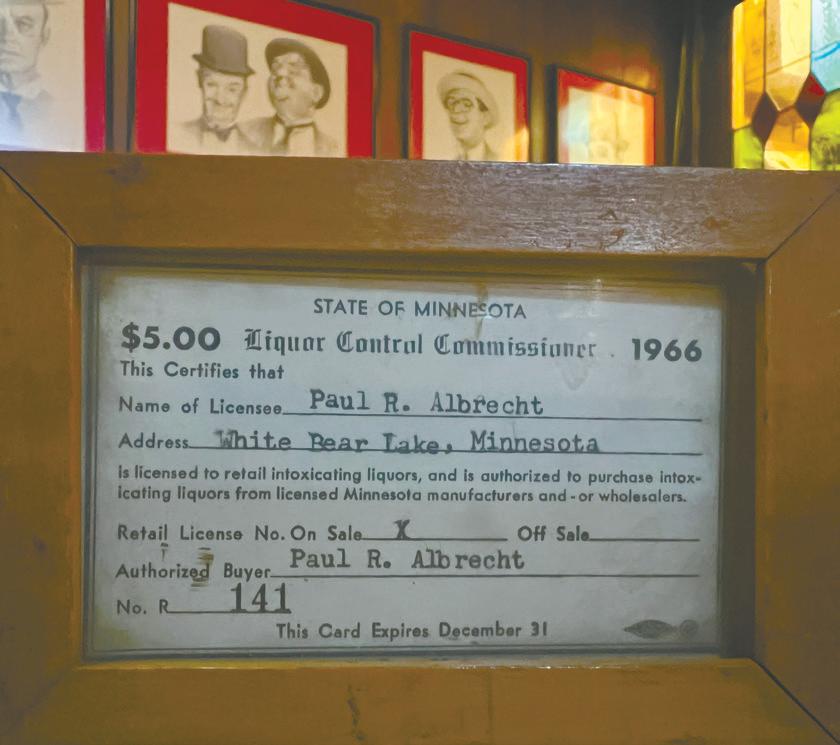 STATE OF MINNESOTA
$5.00 Liquor Control Commissioner 1966
This Certifies that
Name of Licensee Paul R. Albrecht
Address White Bear Lake, Minnesota
is licensed to retail intoxicating liquors, and is authorized to purchase intox-
icating liquors from licensed Minnesota manufacturers and-or wholesalers.
Retail License No. On Sale X Off Sale
Authorized Buyer Paul R. Albrecht
No. R 141
This Card Expires December 31